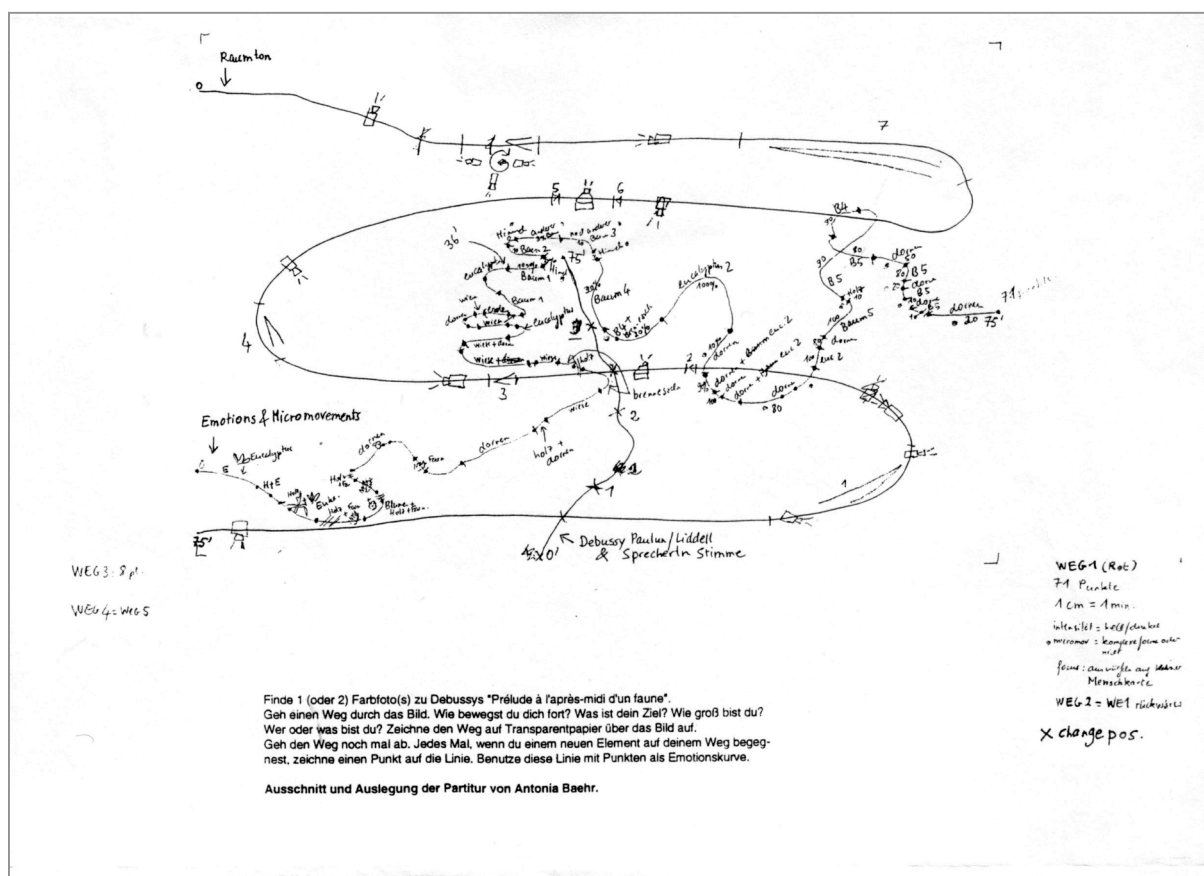 Raumton
0
7
5
6
B4
Himmel
anderer
noch anderer
Baum 3
36'
Baum 2
75'
Himmel
eucalyptus
100%
Baum 1
Baum 4
eucalyptus 2
100%
90
80
B5
dornen
50
B5
B5
dorne
dornen
20
75'
Baum 1
wiese
dornen
wiese
eucalyptus
3
Holz
10
100
Baum 5
4
wiese + dorn
wiese + dornen
wiese
holz
2
3
brennesseln
wiese
2
100%
dornen
dorne + Baum euc 2
dorne
80
dorne
euc 2
Emotions & Micromovements
Eucalyptus
E
H+E
dornen
dornen
holz +
dornen
Holz
Blume +
1
1
75'
0'
Debussy Paulun/Liddell
& SprecherIn Stimme
WEG 3: 8 pt.
WEG 4 = WEG 5
WEG 1 (Rot)
71 Punkte
1 cm = 1 min.
intensität = hell/dunkel
micromov = komplexe form oder
nicht
focus: auswürfeln auf
Menschkarte
WEG 2 = WE1 rückwärts
X change pos.
Finde 1 (oder 2) Farbfoto(s) zu Debussys "Prélude à l'après-midi d'un faune".
Geh einen Weg durch das Bild. Wie bewegst du dich fort? Was ist dein Ziel? Wie groß bist du?
Wer oder was bist du? Zeichne den Weg auf Transparentpapier über das Bild auf.
Geh den Weg noch mal ab. Jedes Mal, wenn du einem neuen Element auf deinem Weg begeg-
nest, zeichne einen Punkt auf die Linie. Benutze diese Linie mit Punkten als Emotionskurve.
Ausschnitt und Auslegung der Partitur von Antonia Baehr.